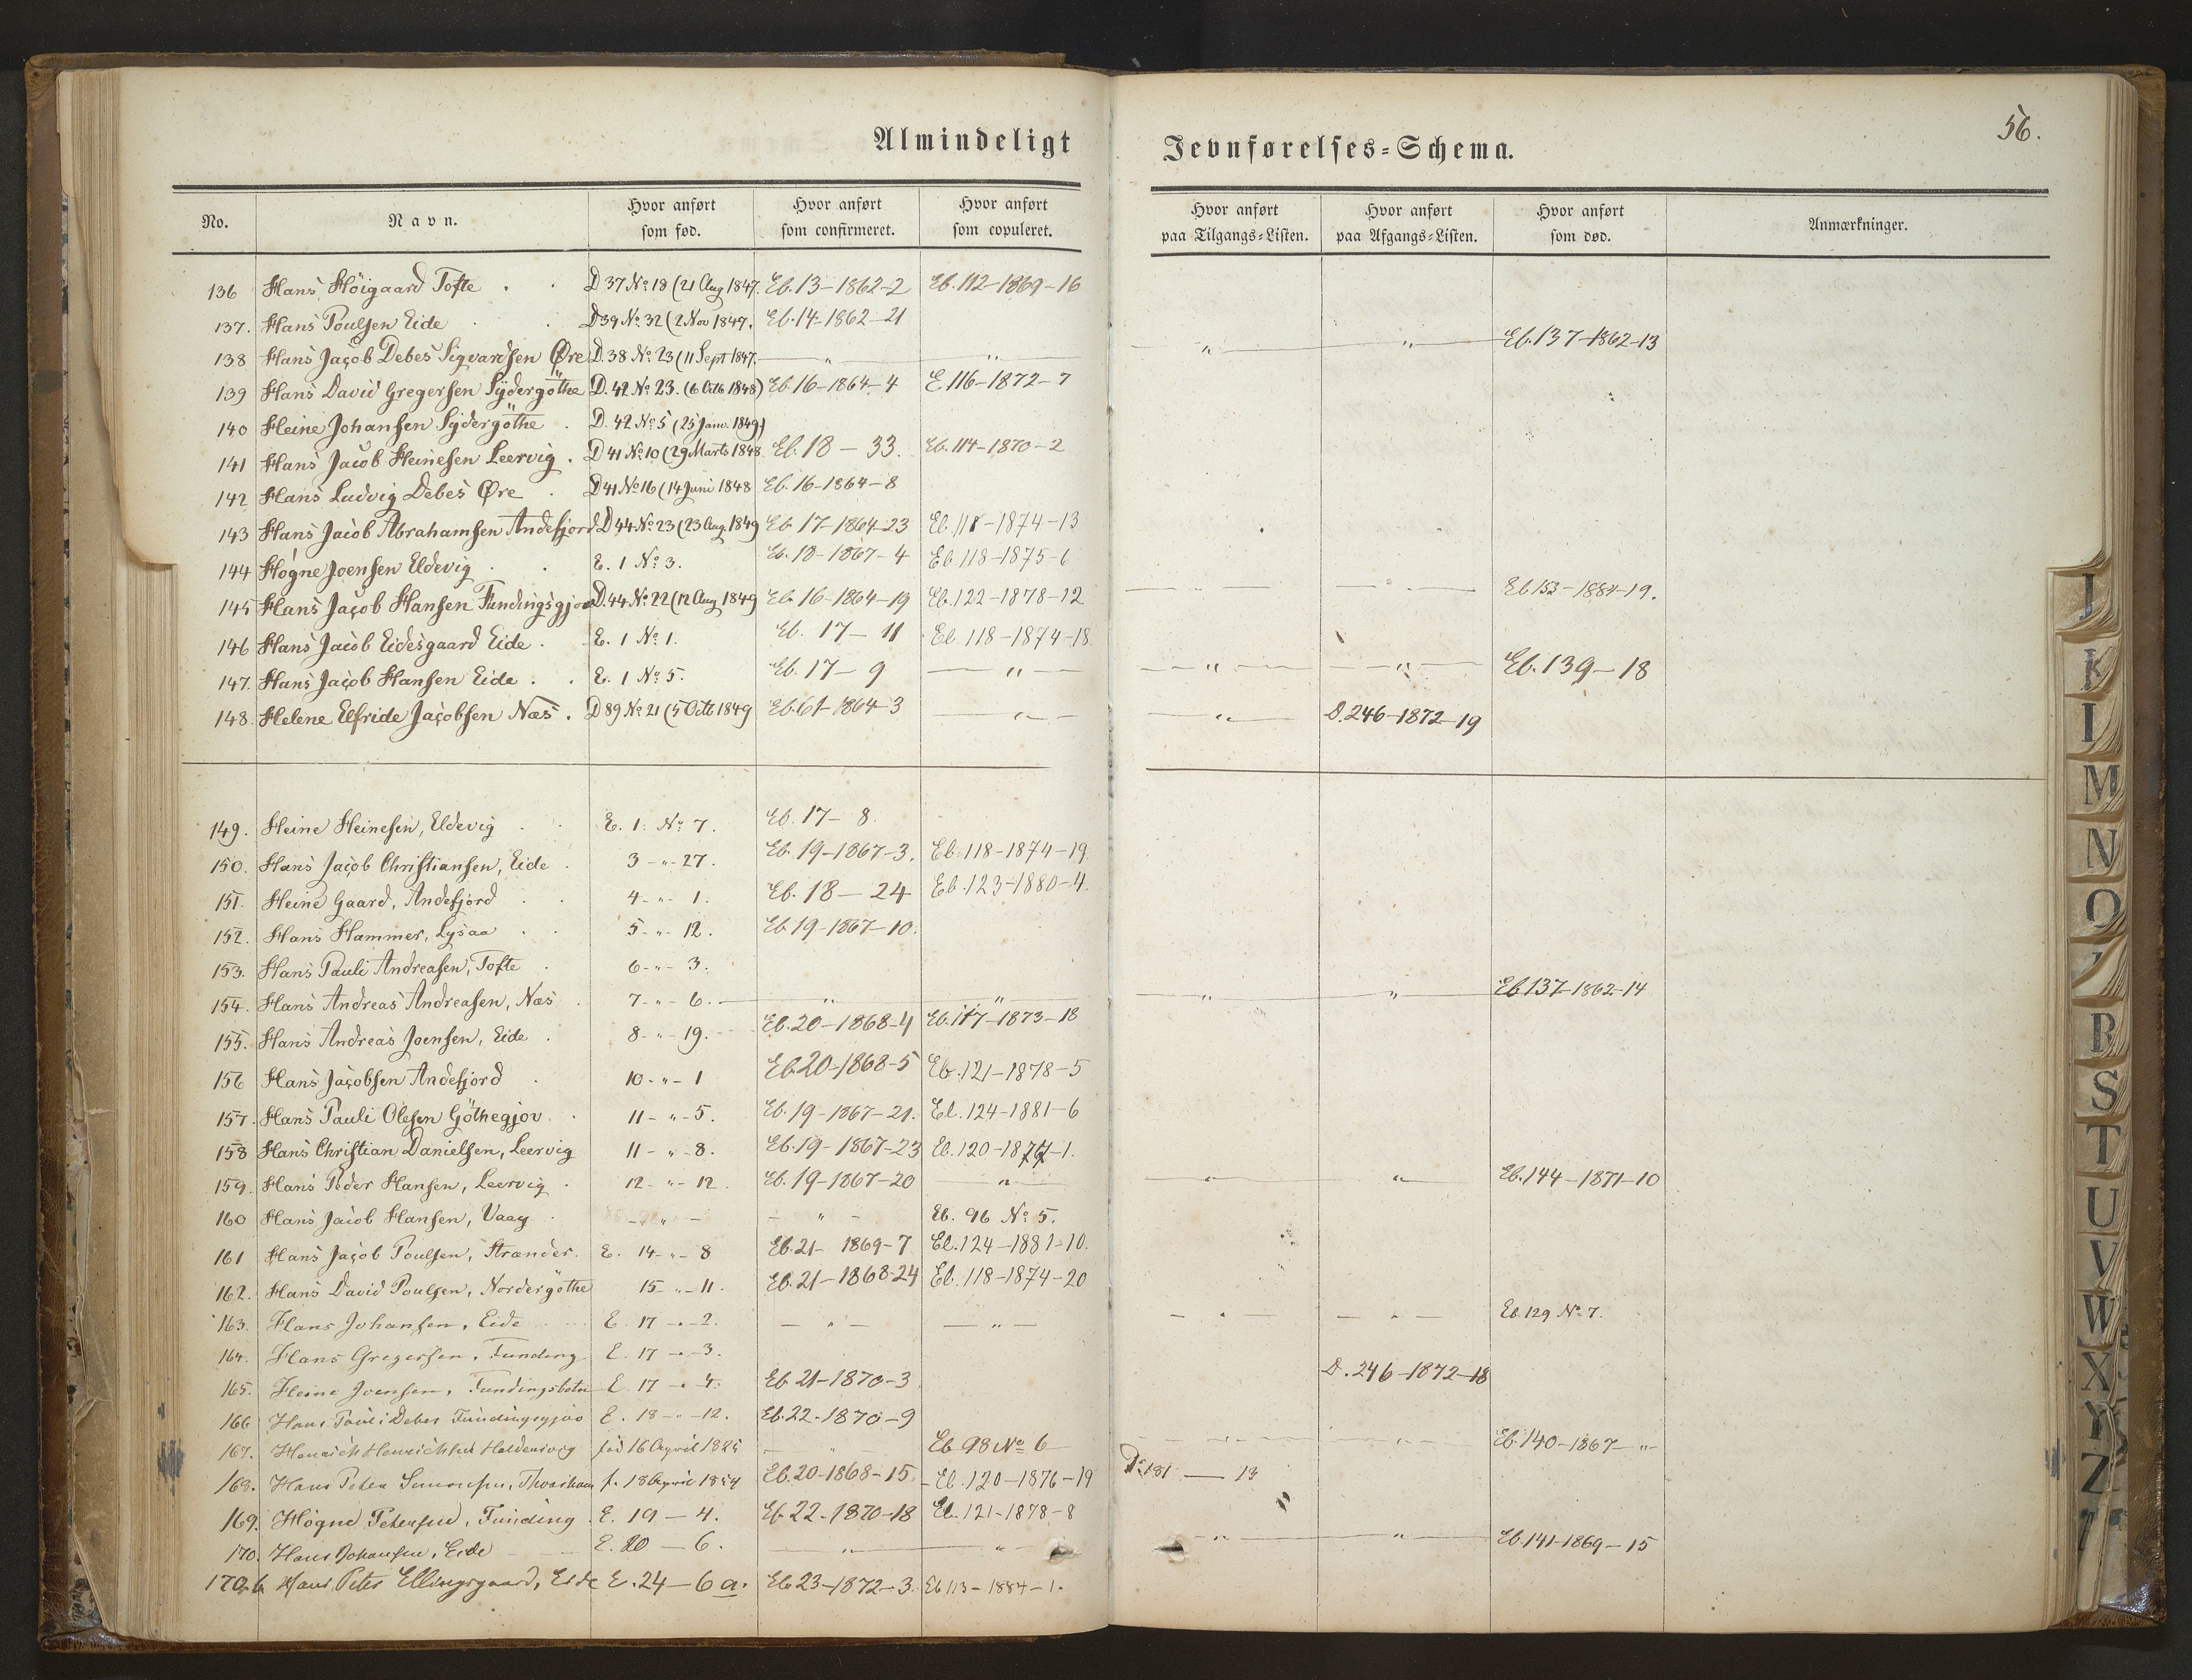 56.
Almindeligt Jevnførelses=Schema.
No. Navn. Hvor anført som fød. Hvor anført som confirmeret. Hvor anført som copuleret. Hvor anført paa Tilgangs=Listen. Hvor anført paa Afgangs=Listen. Hvor anført som død. Anmærkninger.
136 Hans Höigaard Tofte . . D 37 No 18 (21 Aug 1847. Eb. 13-1862-2 Eb. 112-1869-16
137. Hans Poulsen Eide . . D39 No 32 (2 Nov 1847. Eb. 14-1862-21
138 Hans Jacob Debes Sigvardsen Øre D. 38 No 23 (11 Sept 1847. — " — " — " — " — Eb. 137-1862-13
139 Hans David Gregersen Sydergöthe D. 42 No 23. (6 Octb 1848) Eb. 16-1864-4 E 116-1872-7
140 Heine Johansen Sydergöthe . D. 42 No 5 (25 Janv. 1849)
141 Hans Jacob Heinesen Leervig . D 41 No 10 (29 Marts 1848 Eb. 18 — 33. Eb. 114-1870-2
142 Hans Ludvig Debes Øre . D 41 No 16 (14 Juni 1848 Eb. 16-1864-8
143 Hans Jacob Abrahamsen Andefjord D 44 No 23 (23 Aug. 1849) Eb. 17-1864-23 Eb. 118-1874-13
144 Högne Joensen Eldevig . . E. 1 No 3. Eb. 18-1867-4 Eb. 118-1875-6
145 Hans Jacob Hansen Fundingsgjov D. 44 No 22 (12 Aug 1849 Eb. 16-1864-19 Eb. 122-1878-12 — — Eb 153-1884-19.
146 Hans Jacob Eidesgaard Eide . E. 1 No 1. Eb. 17 — 11 Eb. 118-1874-18
147. Hans Jacob Hansen Eide . . E. 1 No 5. Eb. 17 — 9 — " — " — " — Eb. 139 — 18
148. Helene Elfride Jacobsen Næs . D 89 No 21 (5 Octb 1849 Eb. 61-1864-3 — " — " — D. 246-1872-19
149. Heine Heinesen, Eldevig . . E. 1. No 7. Eb. 17 — 8.
150. Hans Jacob Christiansen, Eide . 3 - " - 27. Eb. 19-1867-3. Eb. 118-1874-19
151. Heine Gaard, Andefjord . . 4 - " - 1. Eb. 18 — 24 Eb. 123-1880-4.
152. Hans Hammer, Lysaa . . 5 - " - 12. Eb 19-1867-10.
153. Hans Pauli Andreasen, Tofte . 6 - " - 3.
154. Hans Andreas Andreasen, Næs . 7 - " - 6. — " — " — " — " — Eb 137-1862-14
155. Hans Andreas Joensen, Eide . 8 - " - 19. Eb. 20-1868-4 Eb. 117-1873-18
156 Hans Jacobsen Andefjord . 10 - " - 1 Eb 20-1868-5 Eb. 121-1878-5
157. Hans Pauli Olesen Göthegjov . . 11 - " - 5. Eb. 19-1867-21. Eb. 124-1881-6
158 Hans Christian Danielsen, Leervig 11 - " - 8. Eb. 19-1867-23 Eb. 120-1877-1.
159. Hans Peder Hansen, Leervig . 12 - " - 12. Eb. 19-1867-20 — " — " — " — Eb. 144-1871-10
160 Hans Jacob Hansen, Vaag . — " — — " — Eb. 96 No 5.
161 Hans Jacob Poulsen, Strænder. E. 14 - " - 8 Eb. 21-1869-7 Eb. 124-1881-10.
162. Hans David Poulsen, Nordergöthe 15 - " - 11. Eb. 21-1868-24 Eb. 118-1874-20
163. Hans Johansen, Eide E. 17 - " - 2. — " — — " — — " — — " — Eb. 129 No 7.
164. Hans Gregersen, Funding E. 17 - " - 3.
165. Heine Joensen, Fundingsbotn E. 17 - " - 4. Eb 21-1870-3 D. 246-1872-18
166 Hans Pauli Debes Fundingsgjov E. 18 - " - 12. Eb. 22-1870-9
167. Henrich Henrichsen Haldersvig fød 16 April 1825 — " — Eb 98 No 6 — " — Eb. 140-1867 - " -
168. Hans Peter Simonsen, Thorshavn f. 18 April 1854 Eb. 20-1868-15 Eb. 120-1876-19 D. 181 — 13
169. Högne Petersen, Funding . E. 19 — 4. Eb 22-1870-18 Eb. 121-1878-8
170. Hans Johansen, Eide E. 20 — 6. — " — " — " — " — Eb. 141-1869-15
170.b Hans Peter Ellingsgaard, Eide E. 24 — 6 a. Eb 23-1872-3. Eb 113-1884-1.
J
K
M
N
O
R
S
T
U
V
W
X
Y
Z